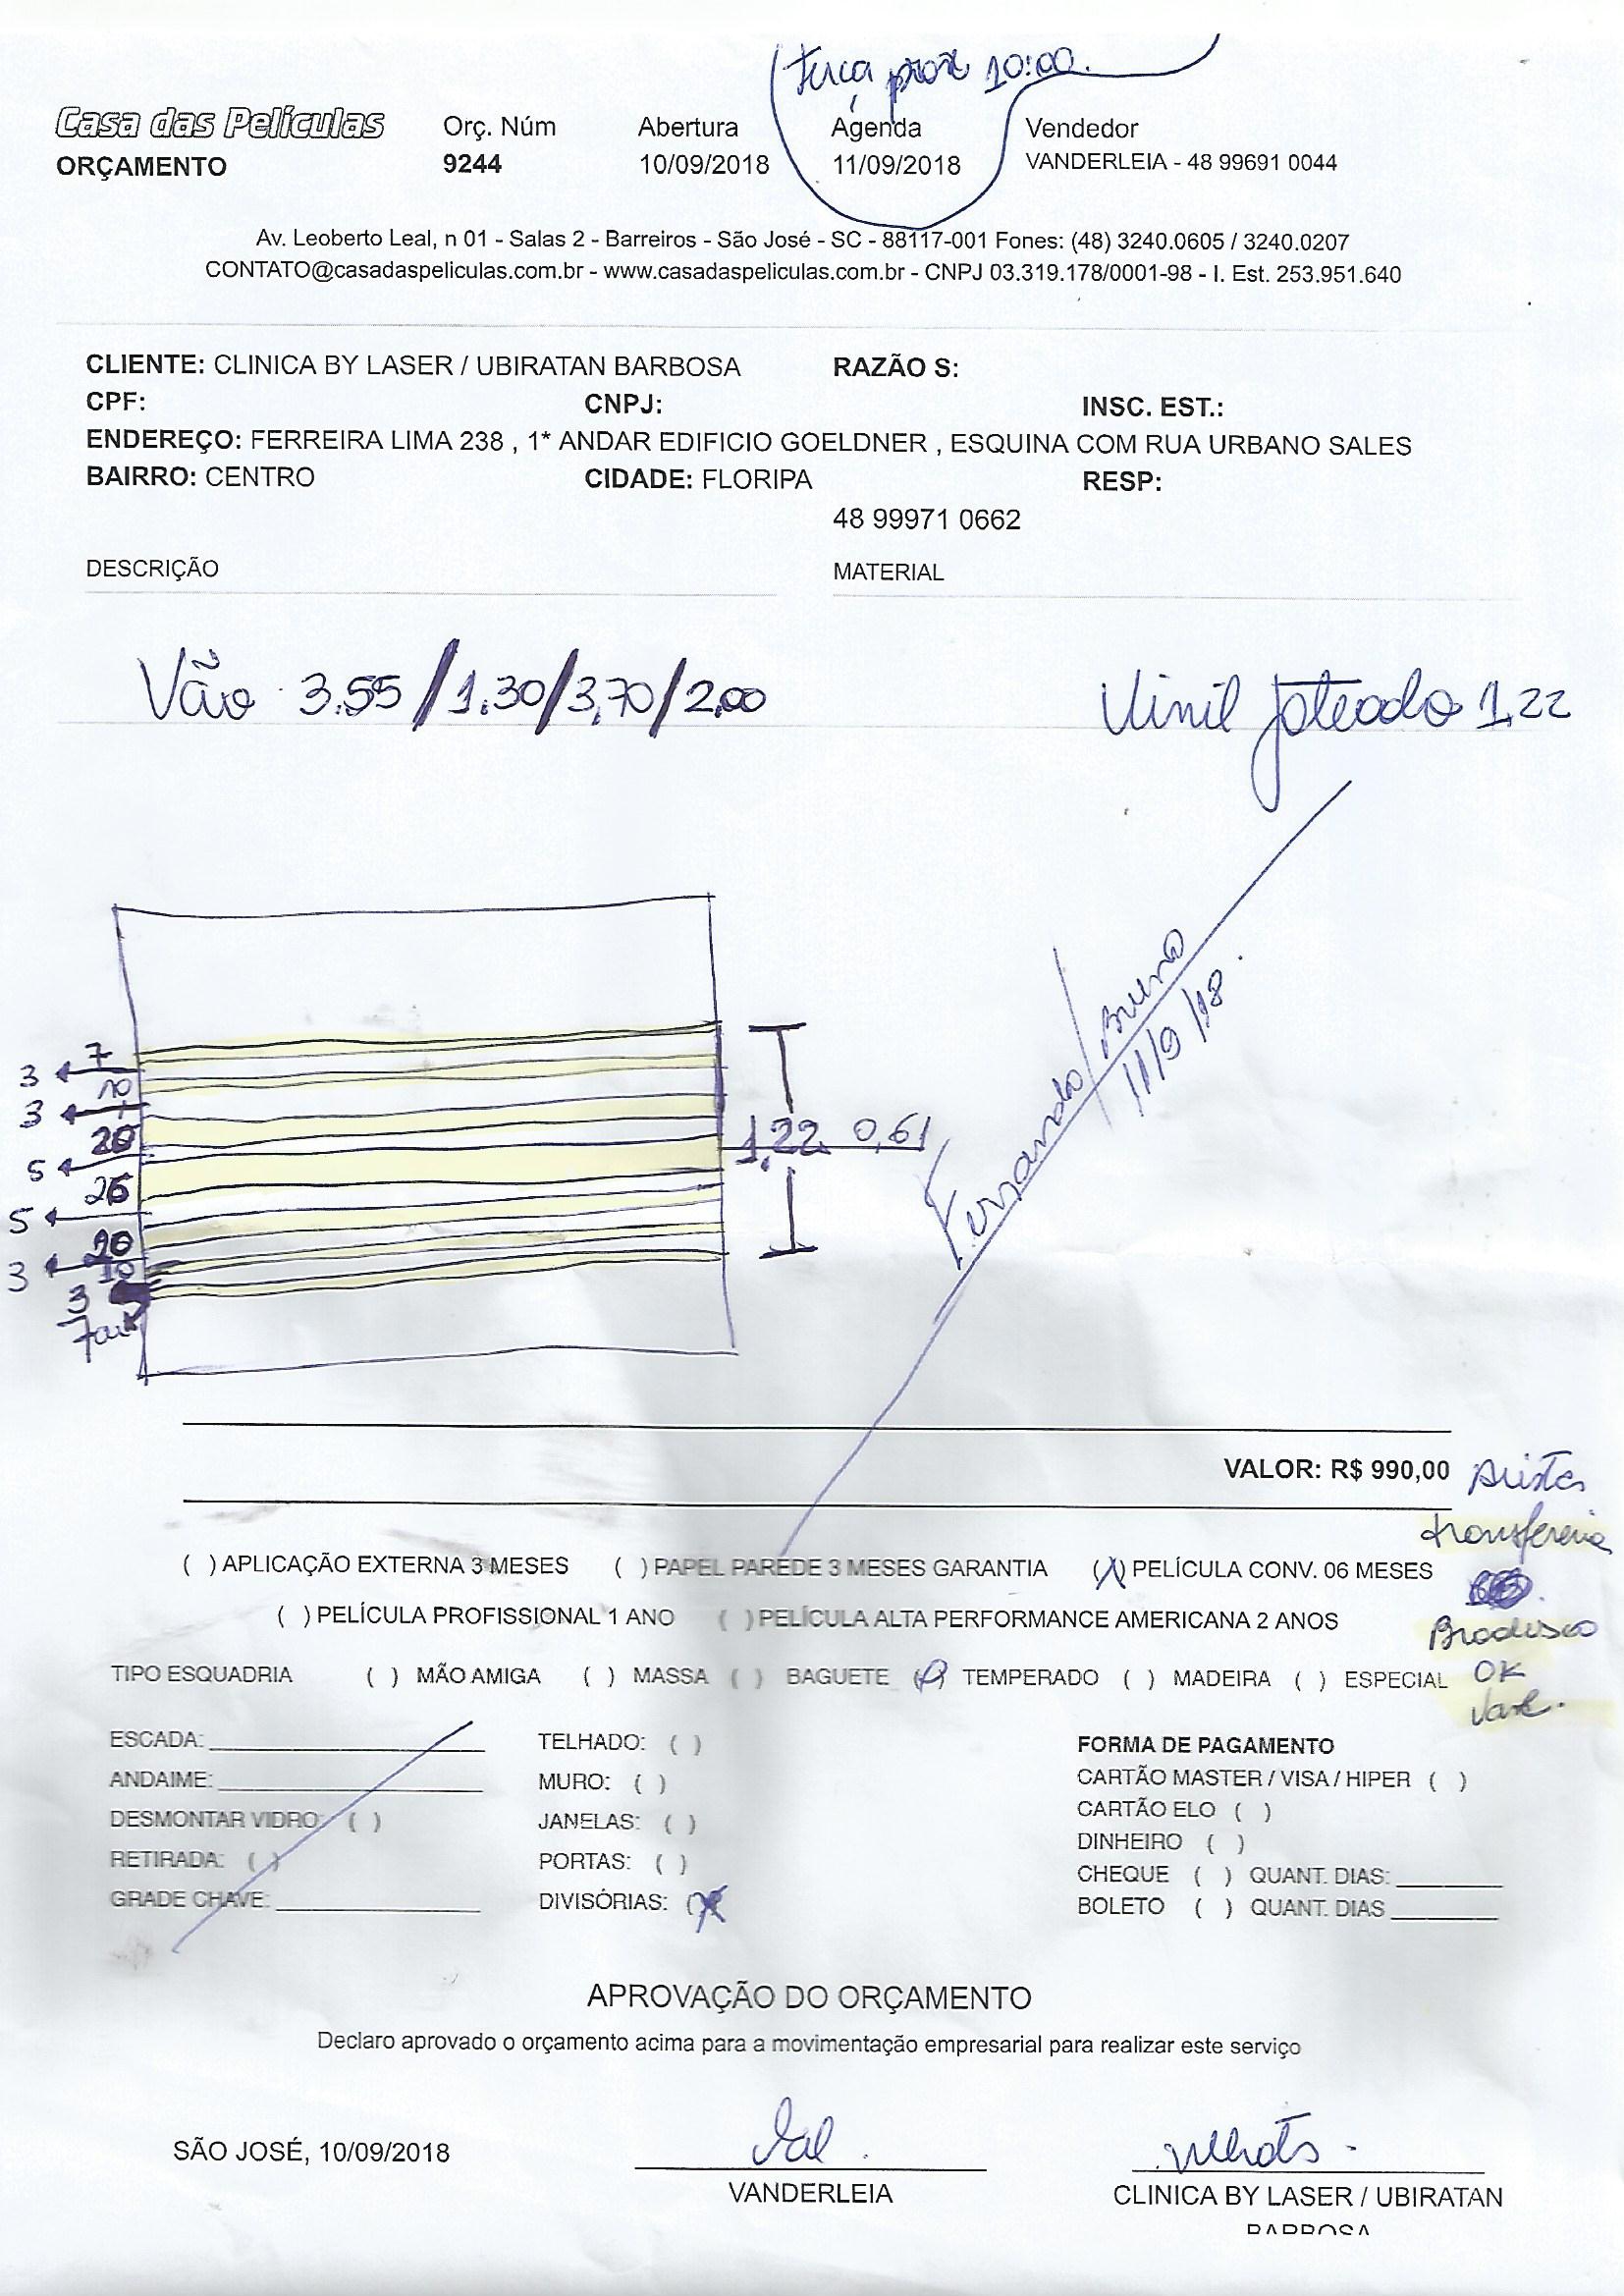 terça próx 10:00.
Casa das Películas
Orç. Núm
Abertura
Agenda
Vendedor
ORÇAMENTO
9244
10/09/2018
11/09/2018
VANDERLEIA - 48 99691 0044
Av. Leoberto Leal, n 01 - Salas 2 - Barreiros - São José - SC - 88117-001 Fones: (48) 3240.0605 / 3240.0207
CONTATO@casadaspeliculas.com.br - www.casadaspeliculas.com.br - CNPJ 03.319.178/0001-98 - I. Est. 253.951.640
CLIENTE: CLINICA BY LASER / UBIRATAN BARBOSA
RAZÃO S:
CPF:
CNPJ:
INSC. EST.:
ENDEREÇO: FERREIRA LIMA 238 , 1* ANDAR EDIFICIO GOELDNER , ESQUINA COM RUA URBANO SALES
BAIRRO: CENTRO
CIDADE: FLORIPA
RESP:
48 99971 0662
DESCRIÇÃO
MATERIAL
Vão 3.55 / 1.30 / 3,70 / 2,00
Vinil Jateado 1,22
7
3
10
3
20
5
26
5
20
3
10
3
1,22 0,61
Fernando / Bruno
11/9/18.
VALOR: R$ 990,00
avista
transferencia
( ) APLICAÇÃO EXTERNA 3 MESES ( ) PAPEL PAREDE 3 MESES GARANTIA (X) PELÍCULA CONV. 06 MESES
( ) PELÍCULA PROFISSIONAL 1 ANO ( ) PELÍCULA ALTA PERFORMANCE AMERICANA 2 ANOS
Bradesco
TIPO ESQUADRIA ( ) MÃO AMIGA ( ) MASSA ( ) BAGUETE ( ) TEMPERADO ( ) MADEIRA ( ) ESPECIAL
OK
ESCADA:
ANDAIME:
DESMONTAR VIDRO: ( )
RETIRADA: ( )
GRADE CHAVE:
TELHADO: ( )
MURO: ( )
JANELAS: ( )
PORTAS: ( )
DIVISÓRIAS: (X)
FORMA DE PAGAMENTO
CARTÃO MASTER / VISA / HIPER ( )
CARTÃO ELO ( )
DINHEIRO ( )
CHEQUE ( ) QUANT. DIAS:
BOLETO ( ) QUANT. DIAS
APROVAÇÃO DO ORÇAMENTO
Declaro aprovado o orçamento acima para a movimentação empresarial para realizar este serviço
SÃO JOSÉ, 10/09/2018
VANDERLEIA
CLINICA BY LASER / UBIRATAN
BARBOSA